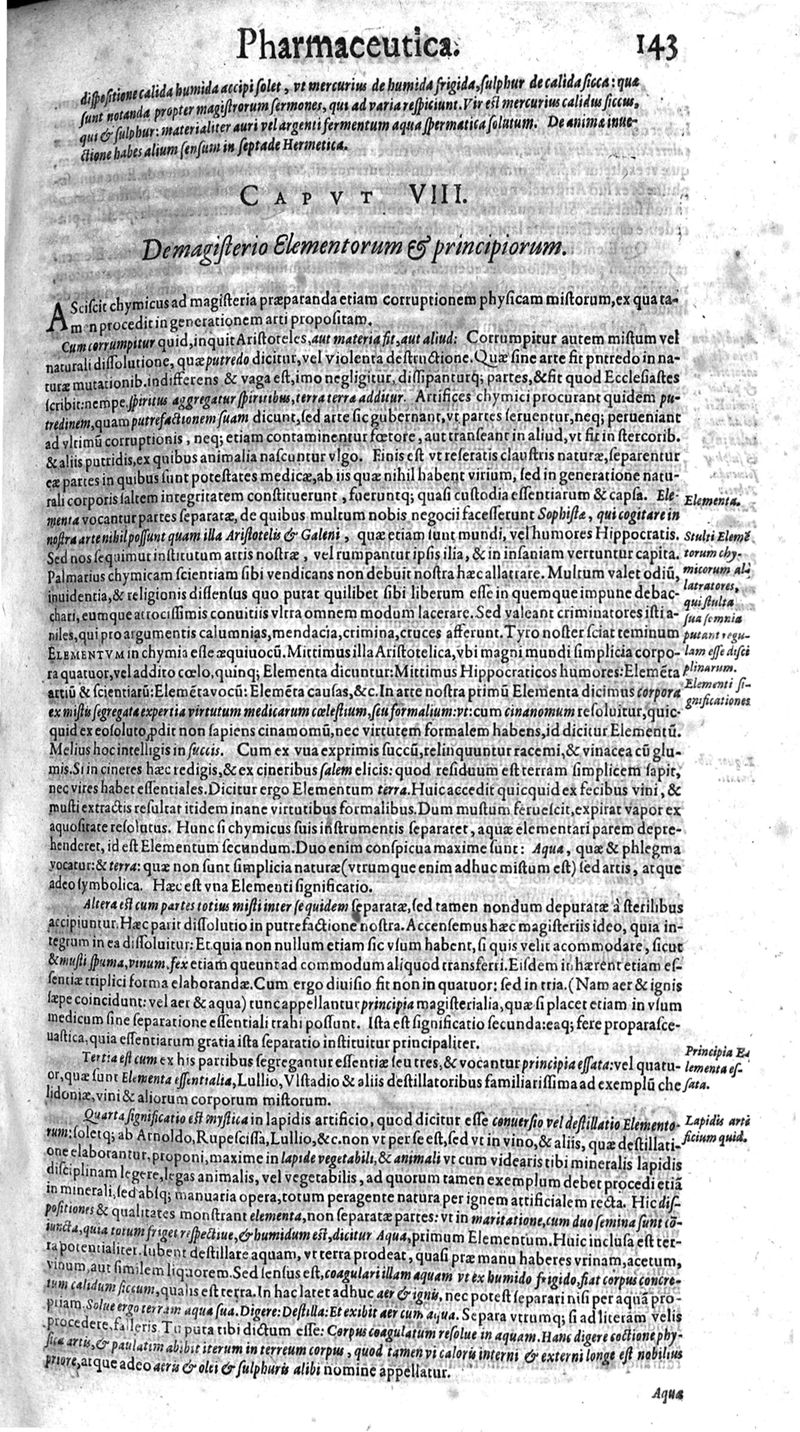 Pharmaceutica.
143
dispositione calida humida accipi solet, vt mercurius de humida frigida, sulphur de calida sicca: quæ
sunt notanda propter magistrorum sermones, qui ad varia respiciunt. Vir est mercurius calidus siccus,
qui & sulphur: materialiter auri vel argenti fermentum aqua spermatica solutum. De anima inue-
ctione habes alium sensum in septade Hermetica.
CAPVT VIII.
De magisterio Elementorum & principiorum.
ASciscit chymicus ad magisteria præparanda etiam corruptionem physicam mistorum, ex qua ta-
men procedit in generationem arti propositam.
Cum corrumpitur quid, inquit Aristoteles, aut materia fit, aut aliud: Corrumpitur autem mistum vel
naturali dissolutione, quæ putredo dicitur, vel violenta destructione. Quæ sine arte fit putredo in na-
turæ mutationib. indifferens & vaga est, imo negligitur, dissipanturq; partes, & fit quod Ecclesiastes
scribit: nempe, spiritus aggregatur spiritibus, terra terræ additur. Artifices chymici procurant quidem pu-
tredinem, quam putrefactionem suam dicunt, sed arte sic gubernant, vt partes seruentur, neq; perueniant
ad vltimū corruptionis, neq; etiam contaminentur fœtore, aut transeant in aliud, vt fit in stercorib.
& aliis putridis, ex quibus animalia nascuntur vlgo. Finis est vt reseratis claustris naturæ, separentur
eæ partes in quibus sunt potestates medicæ, ab iis quæ nihil habent virium, sed in generatione natu-
rali corporis saltem integritatem constituerunt, fueruntq; quasi custodia essentiarum & capsa. Ele-
menta vocantur partes separatæ, de quibus multum nobis negocii facesserunt Sophistæ, qui cogitare in
nostra arte nihil possunt quam illa Aristotelis & Galeni, quæ etiam sunt mundi, vel humores Hippocratis.
Sed nos sequimur institutum artis nostræ, vel rumpantur ipsis ilia, & in insaniam vertuntur capita.
Palmarius chymicam scientiam sibi vendicans non debuit nostra hæc allatrare. Multum valet odiū,
inuidentia, & religionis dissensus quo putat quilibet sibi liberum esse in quemque impune debac-
chari, eumque atrocissimis conuitiis vltra omnem modum lacerare. Sed valeant criminatores isti a-
niles, qui pro argumentis calumnias, mendacia, crimina, cruces afferunt. Tyro noster sciat teminum
ELEMENTVM in chymia esse æquiuocū. Mittimus illa Aristotelica, vbi magni mundi simplicia corpo-
ra quatuor, vel addito cœlo, quinq; Elementa dicuntur: Mittimus Hippocraticos humores: Elemēta
artiū & scientiarū: Elemētavocū: Elemēta causas, &c. In arte nostra primū Elementa dicimus corpora
ex mistis segregata expertia virtutum medicarum cœlestium, seu formalium: vt: cum cinanomum resoluitur, quic-
quid ex eo soluto, pdit non sapiens cinamomū, nec virtutem formalem habens, id dicitur Elementū.
Melius hoc intelligis in succis. Cum ex vua exprimis succū, relinquuntur racemi, & vinacea cū glu-
mis. Si in cineres hæc redigis, & ex cineribus salem elicis: quod residuum est terram simplicem sapit,
nec vires habet essentiales. Dicitur ergo Elementum terra. Huic accedit quicquid ex fecibus vini, &
musti extractis resultat itidem inane virtutibus formalibus. Dum mustum feruescit, expirat vapor ex
aquositate resolutus. Hunc si chymicus suis instrumentis separaret, aquæ elementari parem depre-
henderet, id est Elementum secundum. Duo enim conspicua maxime sunt: Aqua, quæ & phlegma
vocatur: & terra: quæ non sunt simplicia naturæ (vtrumque enim adhuc mistum est) sed artis, atque
adeo symbolica. Hæc est vna Elementi significatio.
Altera est cum partes totius misti inter se quidem separatæ, sed tamen nondum depuratæ à sterilibus
accipiuntur. Hæc parit dissolutio in putrefactione nostra. Accensemus hæc magisteriis ideo, quia in-
tegrum in ea dissoluitur: Et quia non nullum etiam sic vsum habent, si quis velit acommodare, sicut
& musti spuma, vinum. fex etiam queunt ad commodum aliquod transferri. Eisdem inhærent etiam es-
sentiæ triplici forma elaborandæ. Cum ergo diuisio fit non in quatuor: sed in tria. (Nam aer & ignis
sæpe coincidunt: vel aer & aqua) tunc appellantur principia magisterialia, quæ si placet etiam in vsum
medicum sine separatione essentiali trahi possunt. Ista est significatio secunda: eaq; fere proparasce-
uastica, quia essentiarum gratia ista separatio instituitur principaliter.
Tertia est cum ex his partibus segregantur essentiæ seu tres, & vocantur principia essata: vel quatu-
or, quæ sunt Elementa essentialia, Lullio, Vlstadio & aliis destillatoribus familiarissima ad exemplū che
lidoniæ, vini & aliorum corporum mistorum.
Quarta significatio est mystica in lapidis artificio, quod dicitur esse conuersio vel destillatio Elemento-
rum: soletq; ab Arnoldo, Rupescissa, Lullio, &c. non vt per se est, sed vt in vino, & aliis, quæ destillati-
one elaborantur, proponi, maxime in lapide vegetabili, & animali vt cum videaris tibi mineralis lapidis
disciplinam legere, legas animalis, vel vegetabilis, ad quorum tamen exemplum debet procedi etiā
in minerali, sed absq; manuaria opera, totum peragente natura per ignem artificialem recta. Hic dis-
positiones & qualitates monstrant elementa, non separatæ partes: vt in maritatione, cum duo semina sunt cō-
iuncta, quia totum friget respectiue, & humidum est, dicitur Aqua, primum Elementum. Huic inclusa est ter-
ra potentialiter. Iubent destillare aquam, vt terra prodeat, quasi præ manu haberes vrinam, acetum,
vinum, aut similem liquorem. Sed sensus est, coagulari illam aquam vt ex humido frigido, fiat corpus concre-
tum calidum siccum, qualis est terra. In hac latet adhuc aer & ignis, nec potest separari nisi per aquā pro-
priam. Solue ergo terram aqua sua. Digere: Destilla: Et exibit aer cum aqua. Separa vtrumq; si ad literam velis
procedere, falleris. Tu puta tibi dictum esse: Corpus coagulatum resolue in aquam. Hanc digere coctione phy-
sica artis, & paulatim abibit iterum in terreum corpus, quod tamen vi caloris interni & externi longe est nobilius
priore, atque adeo aeris & olei & sulphuris alibi nomine appellatur.
Aqua
Elementa.
Stulti Elemē
torum chy-
micorum al-
latratores,
qui stulta
sua somnia
putant regu-
lam esse disci
plinarum.
Elementi si-
gnificationes
Principia E-
lementa es-
sata.
Lapidis arti
ficium quid.